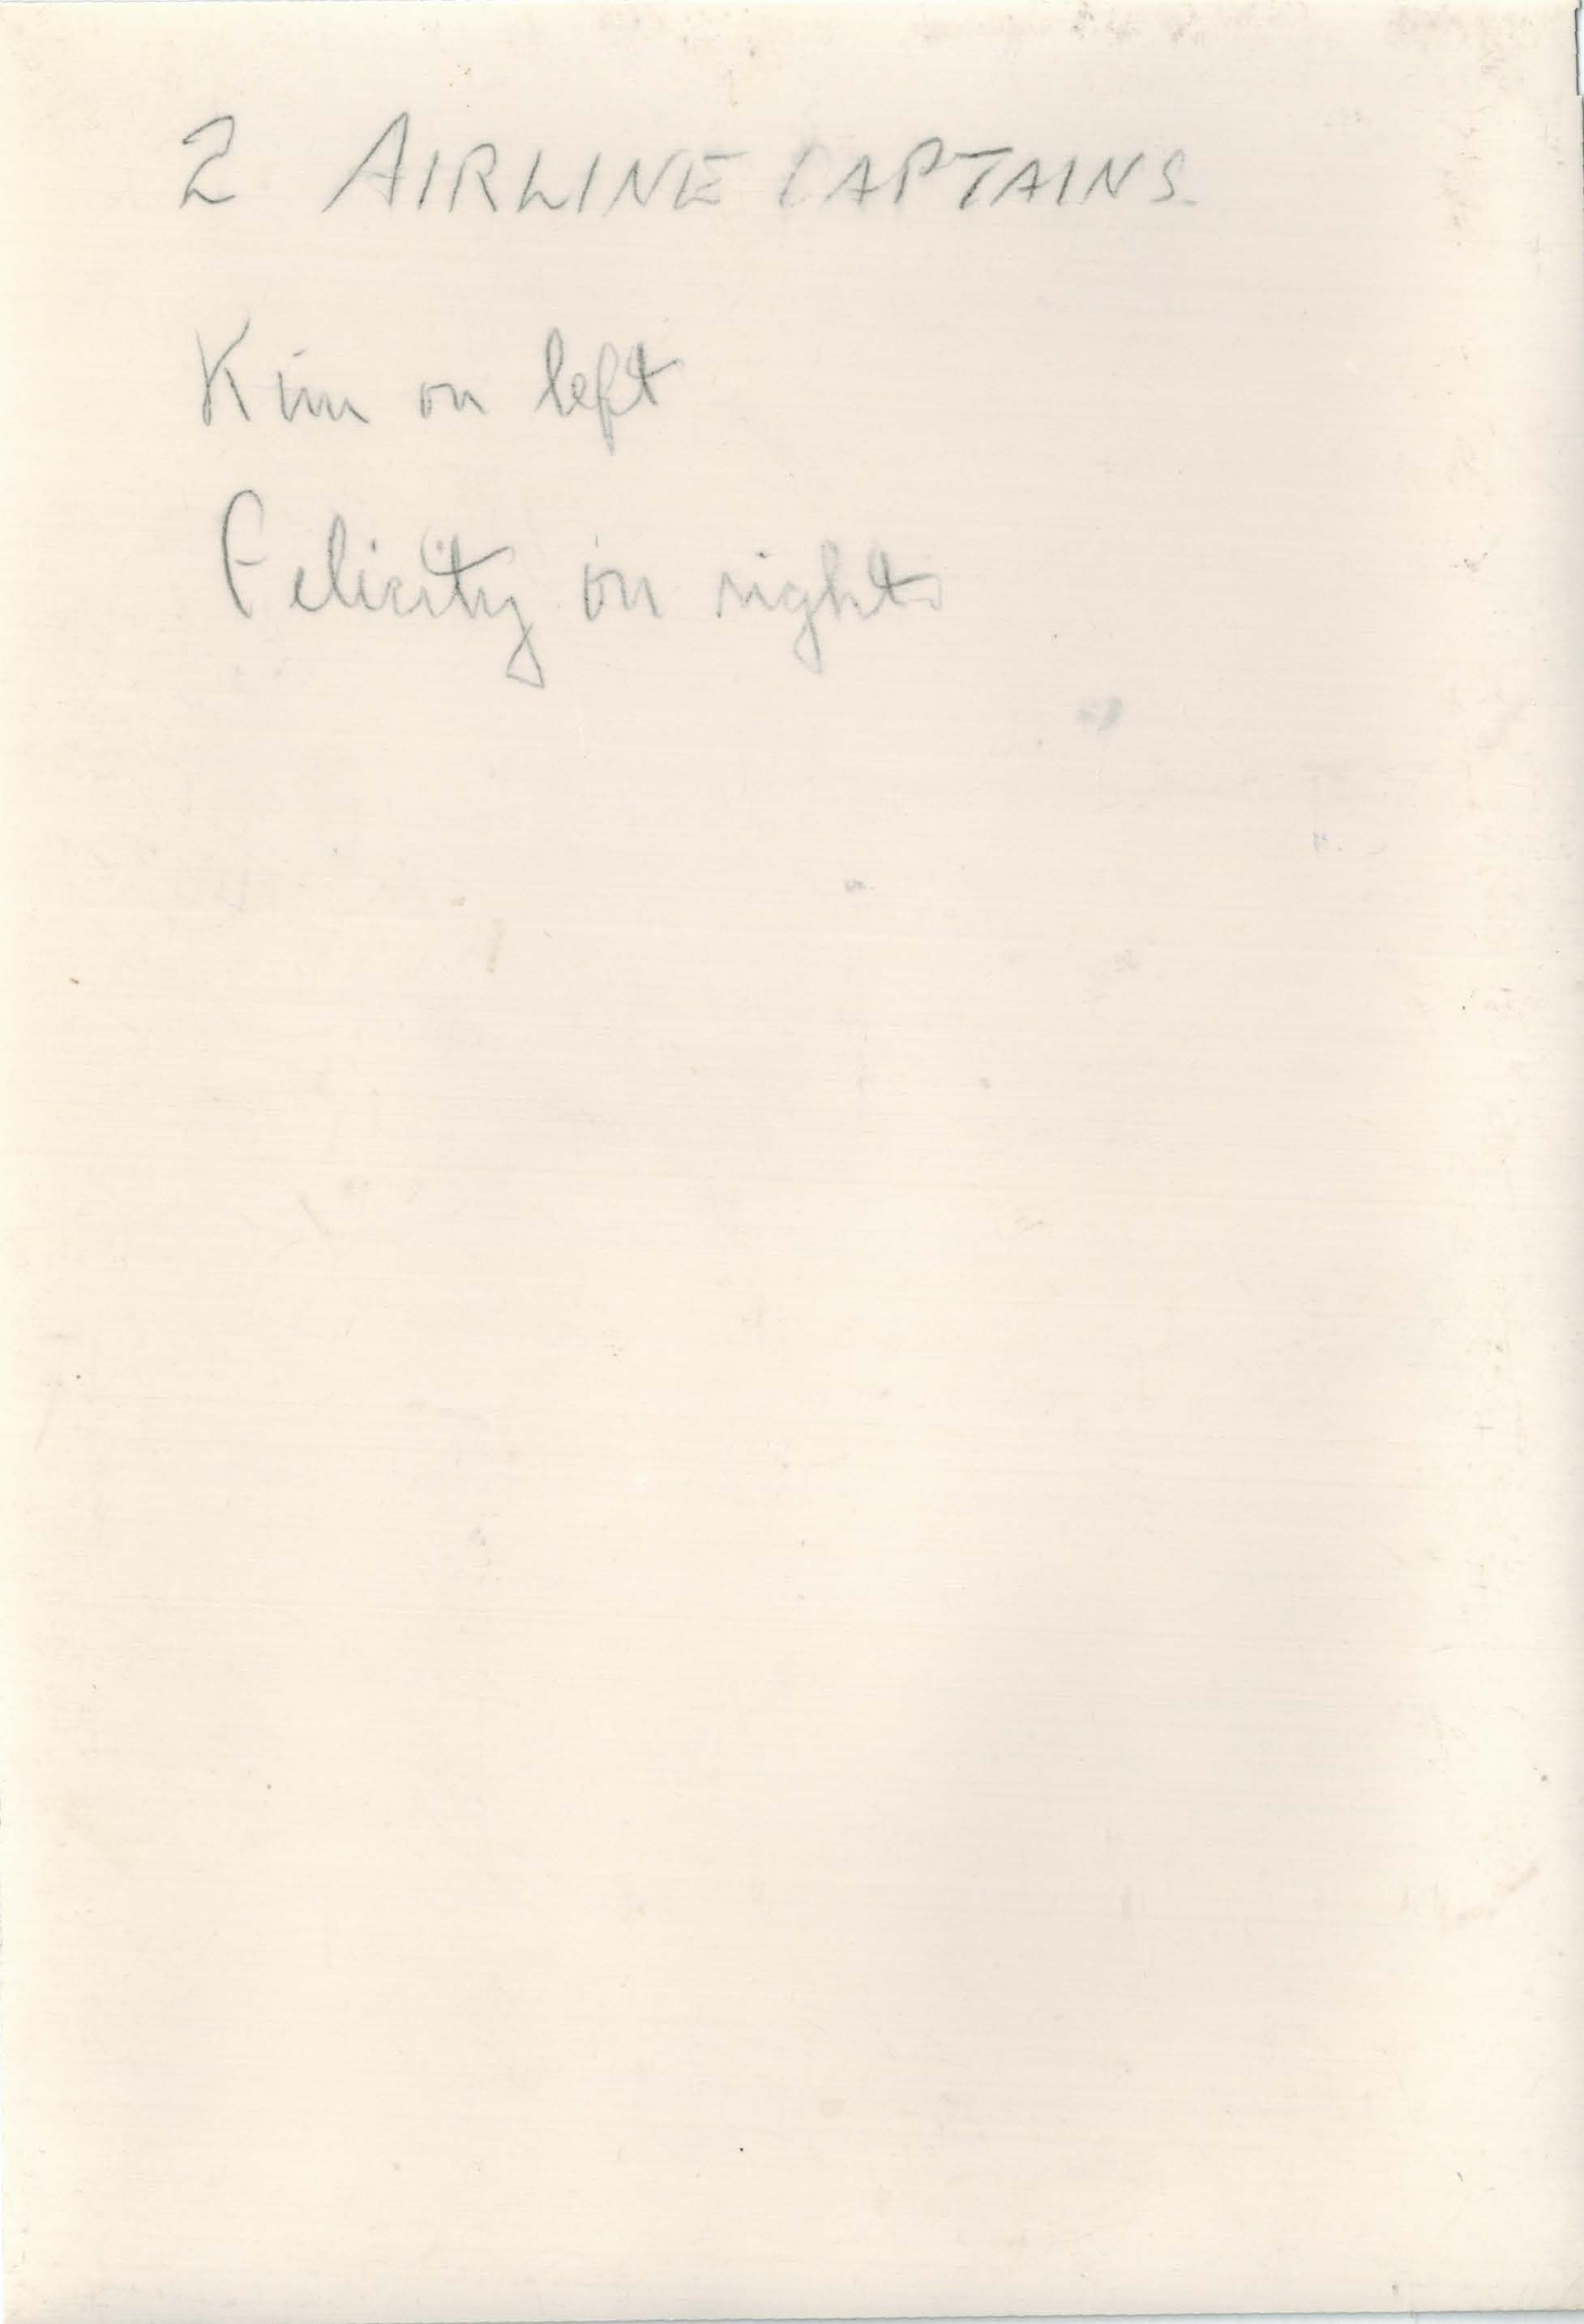 2 AIRLINE CAPTAINS.
Kim on left
Felicity on right